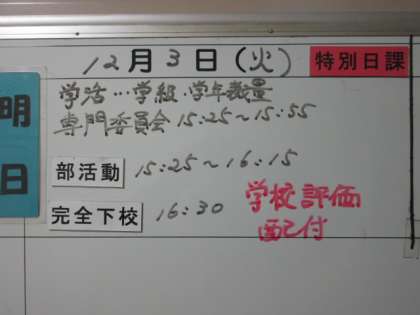 明日
12月3日(火) 特別日課
学活…学級・学年裁量
専門委員会 15:25~15:55
部活動 15:25~16:15
完全下校 16:30
学校評価
配付